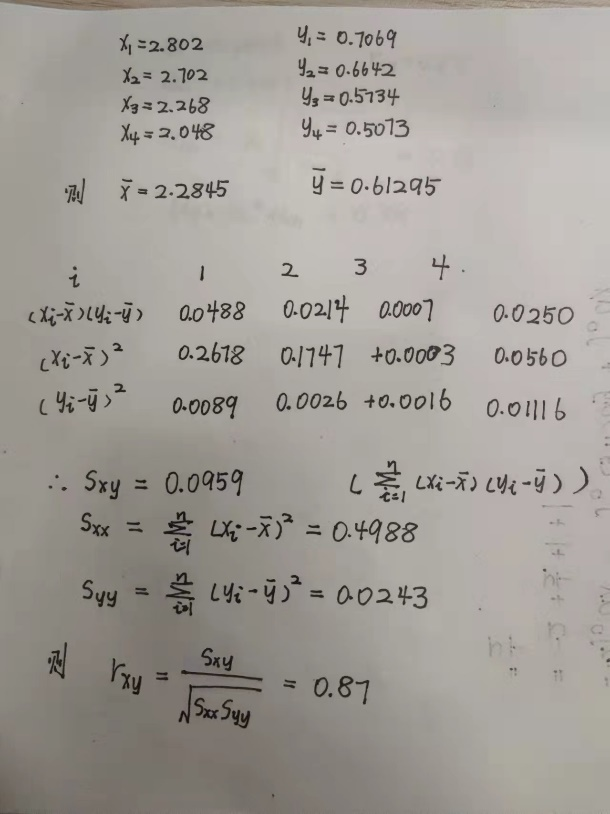 x₁=2.802 y₁=0.7069
x₂=2.702 y₂=0.6642
x₃=2.268 y₃=0.5734
x₄=2.048 y₄=0.5073
则 x̄=2.2845 ȳ=0.61295
i 1 2 3 4.
(xi-x̄)(yi-ȳ) 0.0488 0.0214 0.0007 0.0250
(xi-x̄)² 0.2678 0.1747 +0.0003 0.0560
(yi-ȳ)² 0.0089 0.0026 +0.0016 0.01116
∴ Sxy = 0.0959 (∑ⁿᵢ₌₁ (xi-x̄)(yi-ȳ))
Sxx = ∑ⁿᵢ₌₁ (xi-x̄)² = 0.4988
Syy = ∑ⁿᵢ₌₁ (yi-ȳ)² = 0.0243
则 rxy = Sxy/√SxxSyy = 0.87